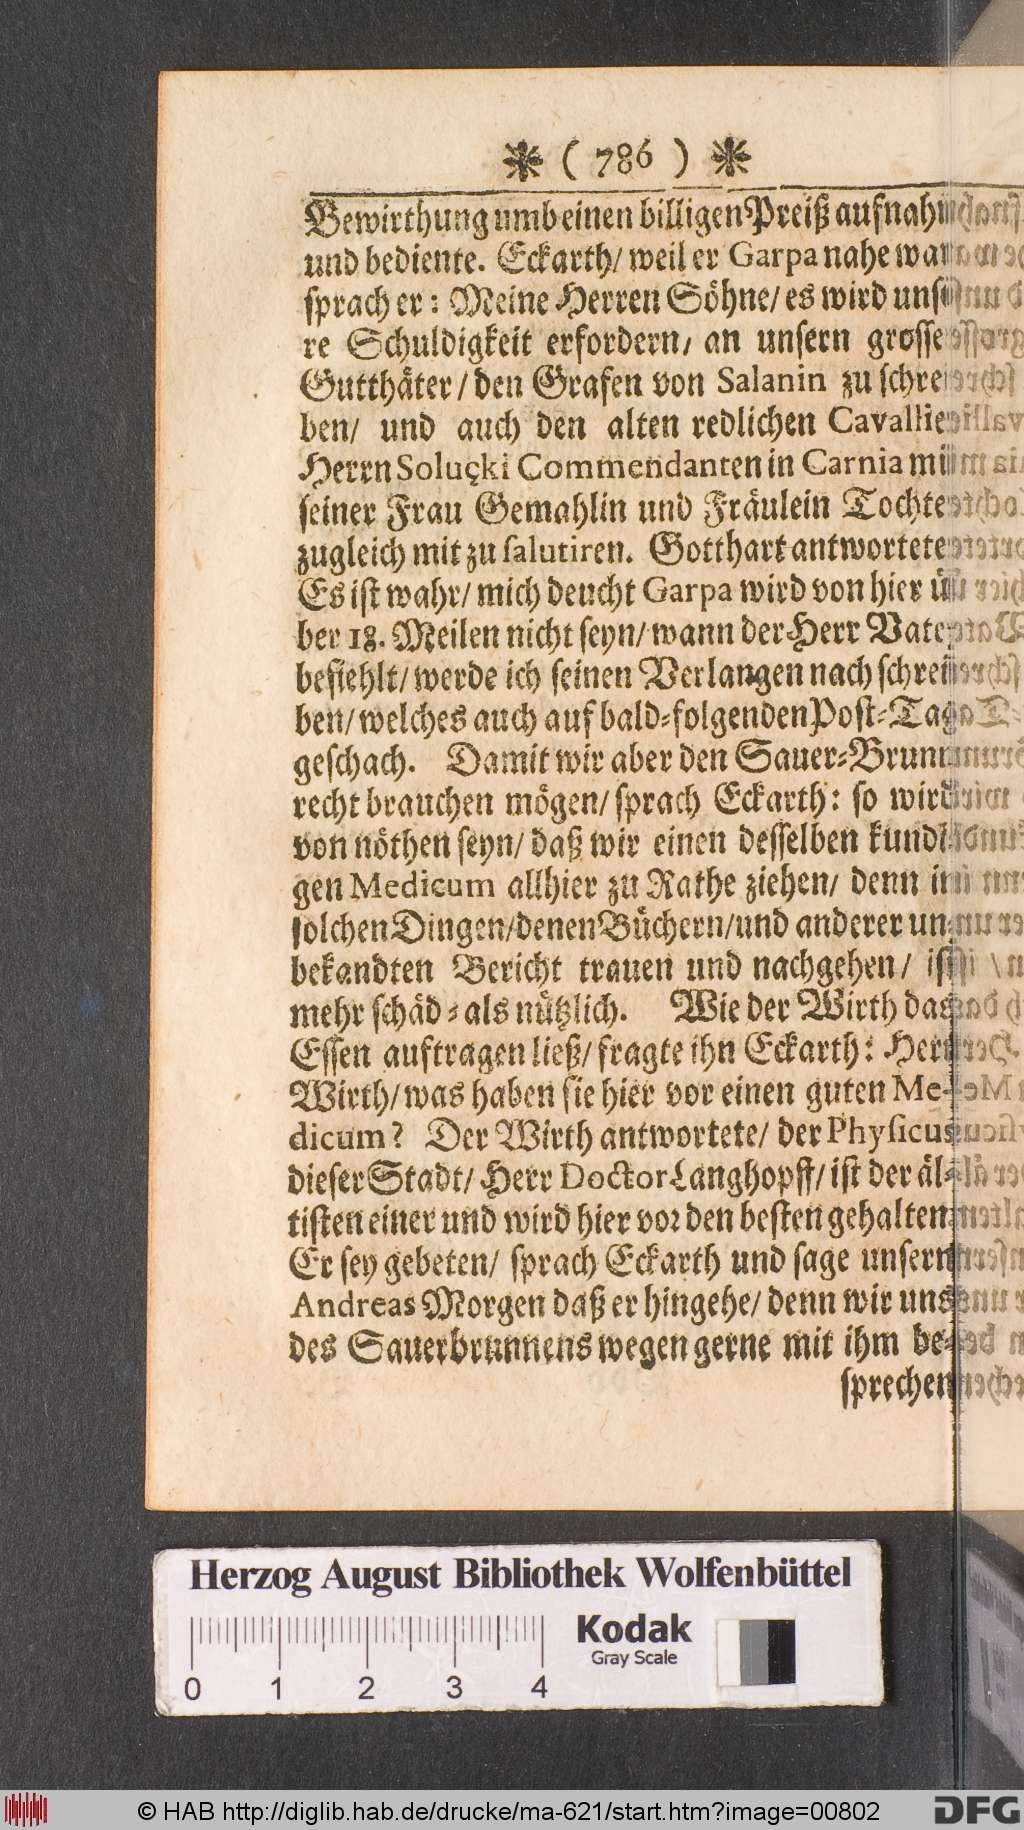 * ( 786 ) *
Bewirthung umb einen billigen Preiß aufnahm
und bediente. Eckarth/ weil er Garpa nahe war
sprach er: Meine Herren Söhne/ es wird unse
re Schuldigkeit erfordern/ an unsern grosse
Gutthäter/ den Grafen von Salanin zu schrei
ben/ und auch den alten redlichen Cavallie
Herrn Soluçki Commendanten in Carnia mit
seiner Frau Gemahlin und Fräulein Tochter
zugleich mit zu salutiren. Gotthart antwortete
Es ist wahr/ mich deucht Garpa wird von hier ü
ber 18. Meilen nicht seyn/ wann der Herr Vater
befiehlt/ werde ich seinen Verlangen nach schrei
ben/ welches auch auf bald-folgenden Post-Tag
geschach. Damit wir aber den Sauer-Brunn
recht brauchen mögen/ sprach Eckarth: so wird
von nöthen seyn/ daß wir einen desselben kundi
gen Medicum allhier zu Rathe ziehen/ denn in
solchen Dingen/ denen Büchern/ und anderer un
bekandten Bericht trauen und nachgehen/ ist
mehr schäd- als nützlich. Wie der Wirth das
Essen auftragen ließ/ fragte ihn Eckarth: Herr
Wirth/ was haben sie hier vor einen guten Me-
dicum? Der Wirth antwortete/ der Physicus
dieser Stadt/ Herr Doctor Langhopff/ ist der äl-
tisten einer und wird hier vor den besten gehalten
Er sey gebeten/ sprach Eckarth und sage unsern
Andreas Morgen daß er hingehe/ denn wir uns
des Sauerbrunnens wegen gerne mit ihm be-
sprechen
Herzog August Bibliothek Wolfenbüttel
Kodak
Gray Scale
0 1 2 3 4
© HAB http://diglib.hab.de/drucke/ma-621/start.htm?image=00802
DFG